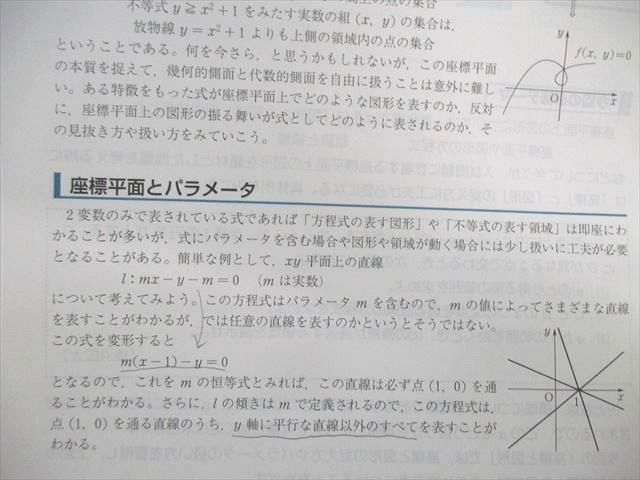 不等式 y≧x²+1 をみたす実数の組 (x, y) の集合は,
放物線 y=x²+1 よりも上側の領域内の点の集合
ということである。何を今さら,と思うかもしれないが,この座標平面
の本質を捉えて,幾何的側面と代数的側面を自由に扱うことは意外に難し
い。ある特徴をもった式が座標平面上でどのような図形を表すのか,反対
に,座標平面上の図形の振る舞いが式としてどのように表されるのか,そ
の見抜き方や扱い方をみていこう。
y
f(x, y)=0
O
x
座標平面とパラメータ
2変数のみで表されている式であれば「方程式の表す図形」や「不等式の表す領域」は即座にわ
かることが多いが,式にパラメータを含む場合や図形や領域が動く場合には少し扱いに工夫が必要
となることがある。簡単な例として,xy 平面上の直線
l : mx-y-m=0 (m は実数)
について考えてみよう。この方程式はパラメータ m を含むので,m の値によってさまざまな直線
を表すことがわかるが,では任意の直線を表すのかというとそうではない。
この式を変形すると
m(x-1)-y=0
となるので,これを m の恒等式とみれば,この直線は必ず点 (1, 0) を通
ることがわかる。さらに,l の傾きは m で定義されるので,この方程式は,
点 (1, 0) を通る直線のうち,y 軸に平行な直線以外のすべてを表すことが
わかる。
y
O
1
x